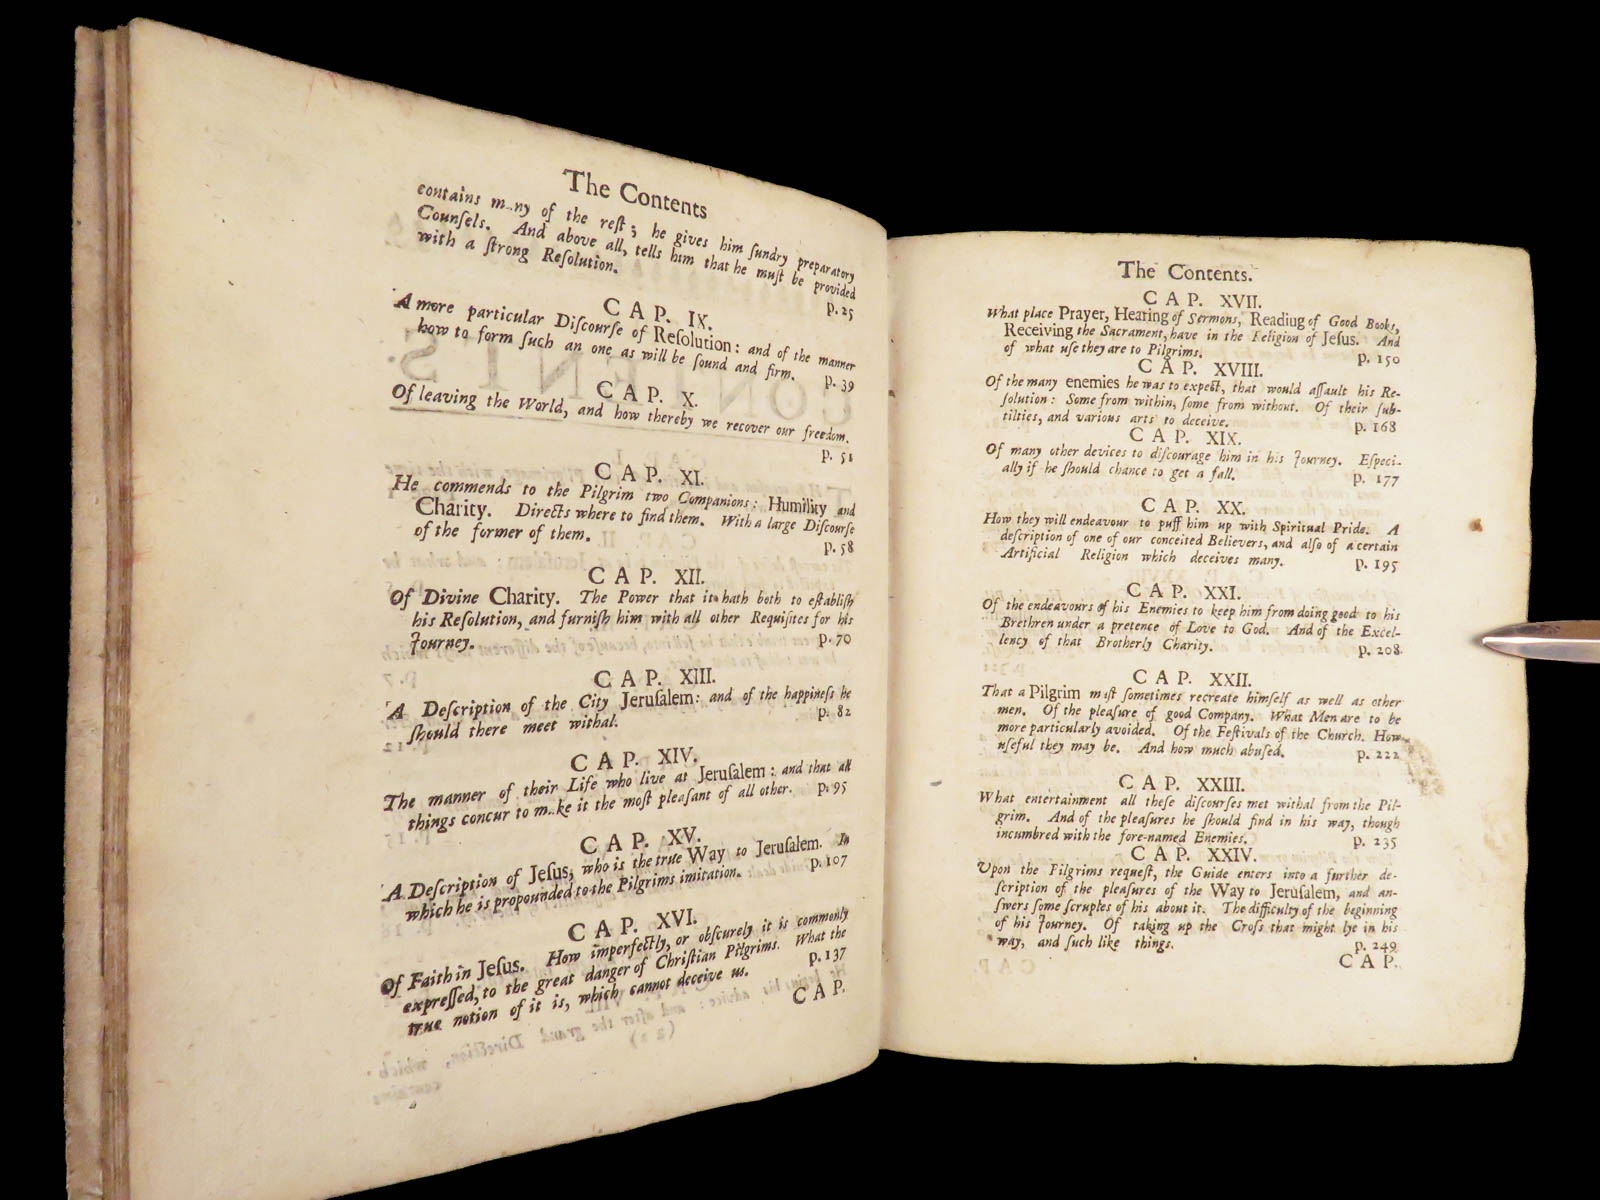 The Contents
contains many of the reſt; he gives him ſundry preparatory
Counſels. And above all, tells him that he muſt be provided
with a ſtrong Reſolution.
p. 25
CAP. IX.
A more particular Diſcourſe of Reſolution: and of the manner
how to form ſuch an one as will be ſound and firm. p. 39
CAP. X.
Of leaving the World, and how thereby we recover our freedom.
p. 51
CAP. XI.
He commends to the Pilgrim two Companions: Humility and
Charity. Directs where to find them. With a large Diſcourſe
of the former of them. p. 58
CAP. XII.
Of Divine Charity. The Power that it hath both to eſtabliſh
his Reſolution, and furniſh him with all other Requiſites for his
Journey. p. 70
CAP. XIII.
A Deſcription of the City Jeruſalem: and of the happineſs he
ſhould there meet withal. p. 82
CAP. XIV.
The manner of their Life who live at Jeruſalem: and that all
things concur to make it the moſt pleaſant of all other. p. 95
CAP. XV.
A Deſcription of Jeſus, who is the true Way to Jeruſalem. In
which he is propounded to the Pilgrims imitation. p. 107
CAP. XVI.
Of Faith in Jeſus. How imperfectly, or obſcurely it is commonly
expreſſed, to the great danger of Chriſtian Pilgrims. What the
true notion of it is, which cannot deceive us. p. 137
CAP.
The Contents.
CAP. XVII.
What place Prayer, Hearing of Sermons, Readiug of Good Books,
Receiving the Sacrament, have in the Religion of Jeſus. And
of what uſe they are to Pilgrims. p. 150
CAP. XVIII.
Of the many enemies he was to expect, that would aſſault his Re-
ſolution: Some from within, ſome from without. Of their ſub-
tilties, and various arts to deceive. p. 168
CAP. XIX.
Of many other devices to diſcourage him in his Journey. Eſpeci-
ally if he ſhould chance to get a fall. p. 177
CAP. XX.
How they will endeavour to puff him up with Spiritual Pride. A
deſcription of one of our conceited Believers, and alſo of a certain
Artificial Religion which deceives many. p. 195
CAP. XXI.
Of the endeavours of his Enemies to keep him from doing good to his
Brethren under a pretence of Love to God. And of the Excel-
lency of that Brotherly Charity. p. 208
CAP. XXII.
That a Pilgrim muſt ſometimes recreate himſelf as well as other
men. Of the pleaſure of good Company. What Men are to be
more particularly avoided. Of the Feſtivals of the Church. How
uſeful they may be. And how much abuſed. p. 222
CAP. XXIII.
What entertainment all theſe diſcourſes met withal from the Pil-
grim. And of the pleaſures he ſhould find in his way, though
incumbred with the fore-named Enemies. p. 235
CAP. XXIV.
Upon the Pilgrims requeſt, the Guide enters into a further de-
ſcription of the pleaſures of the Way to Jeruſalem, and an-
ſwers ſome ſcruples of his about it. The difficulty of the beginning
of his Journey. Of taking up the Croſs that might lye in his
way, and ſuch like things. p. 249
CAP.